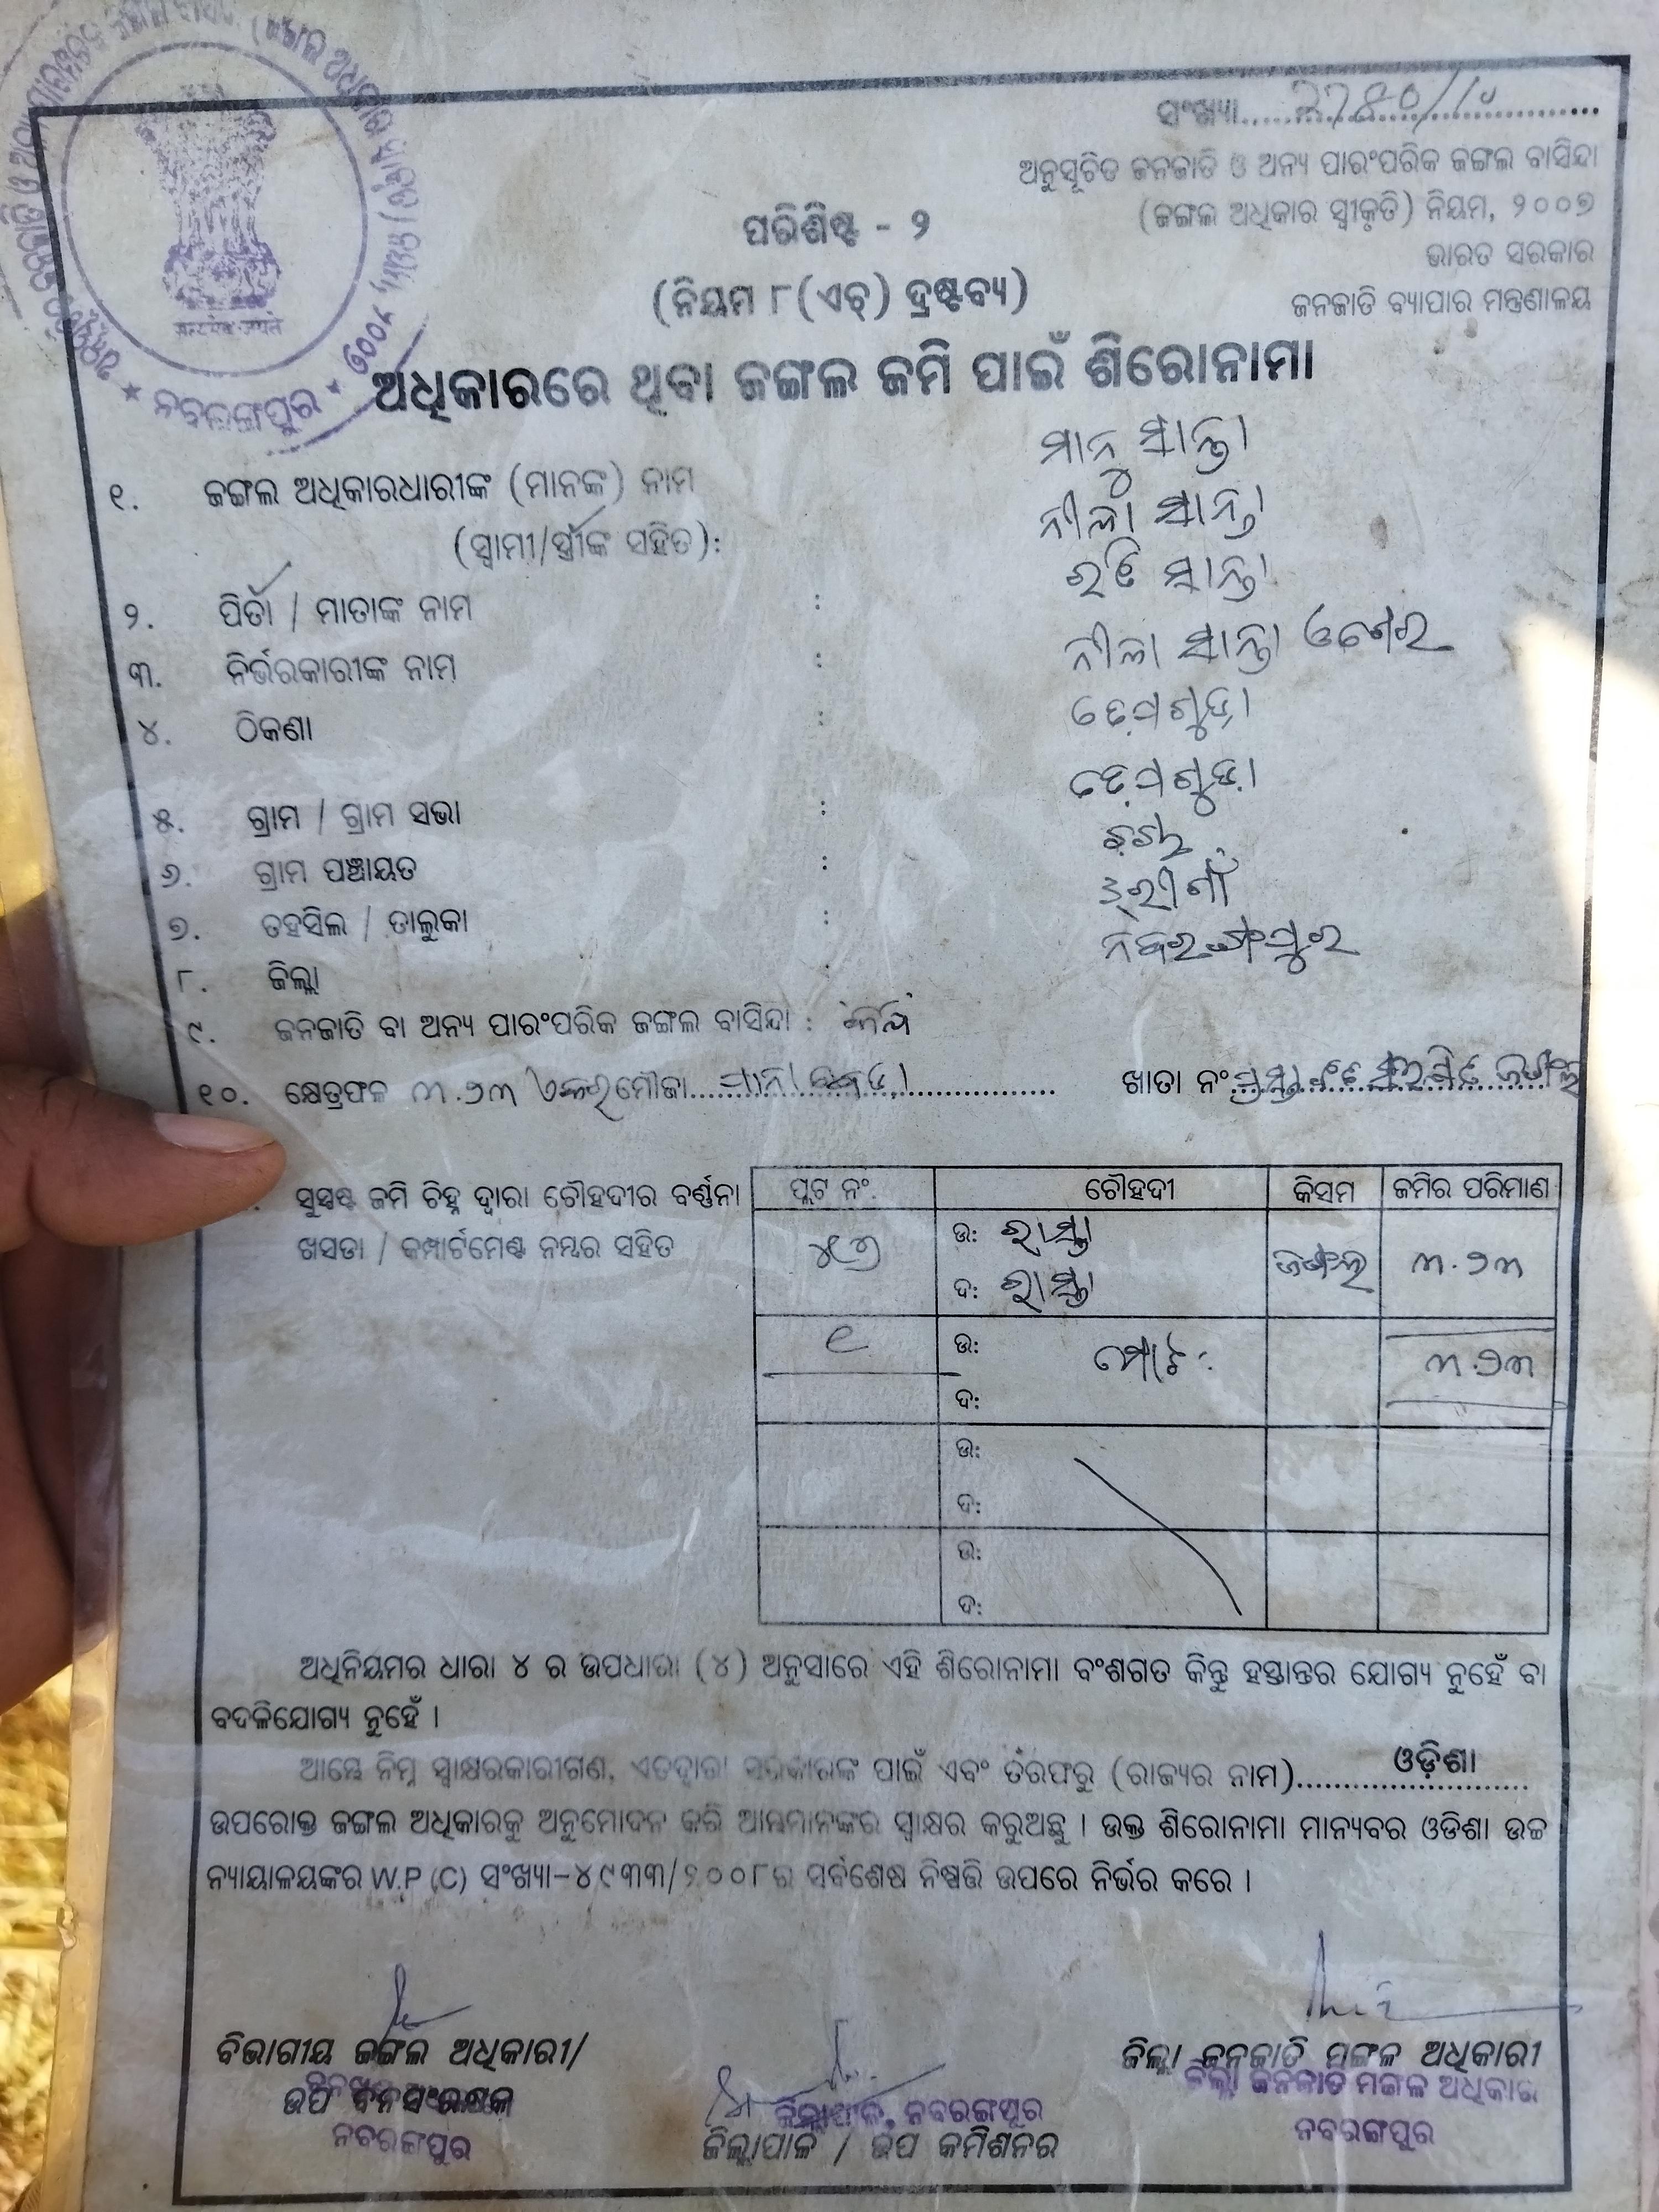 ସଂଖ୍ୟା
ଅନୁସୂଚିତ ଜନଜାତି ଓ ଅନ୍ୟ ପାରଂପରିକ ଜଙ୍ଗଲ ବାସିନ୍ଦା
(ଜଙ୍ଗଲ ଅଧିକାର ସ୍ୱୀକୃତି) ନିୟମ, ୨୦୦୭
ଭାରତ ସରକାର
ଜନଜାତି ବ୍ୟାପାର ମନ୍ତ୍ରଣାଳୟ
ପରିଶିଷ୍ଟ - ୨
(ନିୟମ ୮(ଏଚ୍) ଦ୍ରଷ୍ଟବ୍ୟ)
ନବରଙ୍ଗପୁର
ଅଧିକାରରେ ଥିବା ଜଙ୍ଗଲ ଜମି ପାଇଁ ଶିରୋନାମା
୧. ଜଙ୍ଗଲ ଅଧିକାରଧାରୀଙ୍କ (ମାନଙ୍କ) ନାମ ମାନୁ ସାନ୍ତା
(ସ୍ୱାମୀ/ସ୍ତ୍ରୀଙ୍କ ସହିତ): ନୀଳା ସାନ୍ତା
୨. ପିତା / ମାତାଙ୍କ ନାମ : ସାନ୍ତା
୩. ନିର୍ଭରକାରୀଙ୍କ ନାମ : ନୀଳା ସାନ୍ତା
୪. ଠିକଣା :
୫. ଗ୍ରାମ / ଗ୍ରାମ ସଭା :
୬. ଗ୍ରାମ ପଞ୍ଚାୟତ :
୭. ତହସିଲ / ତାଲୁକା :
୮. ଜିଲ୍ଲା : ନବରଙ୍ଗପୁର
୯. ଜନଜାତି ବା ଅନ୍ୟ ପାରଂପରିକ ଜଙ୍ଗଲ ବାସିନ୍ଦା :
୧୦. କ୍ଷେତ୍ରଫଳ ୩.୨୩ ଏକର ମୌଜା ଖାତା ନଂ
ସୁସ୍ପଷ୍ଟ ଜମି ଚିହ୍ନ ଦ୍ୱାରା ଚୌହଦୀର ବର୍ଣ୍ଣନା
ଖସଡା / କମ୍ପାର୍ଟମେଣ୍ଟ ନମ୍ବର ସହିତ
ପ୍ଲଟ ନଂ. ଚୌହଦୀ କିସମ ଜମିର ପରିମାଣ
ଉ: ରାସ୍ତା ଜଙ୍ଗଲ ୩.୨୩
ଦ: ରାସ୍ତା
୧ ଉ: ମୋଟ: ୩.୨୩
ଦ:
ଉ:
ଦ:
ଉ:
ଦ:
ଅଧିନିୟମର ଧାରା ୪ ର ଉପଧାରା (୪) ଅନୁସାରେ ଏହି ଶିରୋନାମା ବଂଶଗତ କିନ୍ତୁ ହସ୍ତାନ୍ତର ଯୋଗ୍ୟ ନୁହେଁ ବା
ବଦଳିଯୋଗ୍ୟ ନୁହେଁ ।
ଆମ୍ଭେ ନିମ୍ନ ସ୍ୱାକ୍ଷରକାରୀଗଣ, ଏତଦ୍ୱାରା ସରକାରଙ୍କ ପାଇଁ ଏବଂ ତରଫରୁ (ରାଜ୍ୟର ନାମ) ଓଡ଼ିଶା
ଉପରୋକ୍ତ ଜଙ୍ଗଲ ଅଧିକାରକୁ ଅନୁମୋଦନ କରି ଆମ୍ଭମାନଙ୍କର ସ୍ୱାକ୍ଷର କରୁଅଛୁ । ଉକ୍ତ ଶିରୋନାମା ମାନ୍ୟବର ଓଡିଶା ଉଚ୍ଚ
ନ୍ୟାୟାଳୟଙ୍କର W.P.(C) ସଂଖ୍ୟା-୪୯୩୩/୨୦୦୮ର ସର୍ବଶେଷ ନିଷ୍ପତ୍ତି ଉପରେ ନିର୍ଭର କରେ ।
ବିଭାଗୀୟ ଜଙ୍ଗଲ ଅଧିକାରୀ/
ଉପ ବନସଂରକ୍ଷକ
ନବରଙ୍ଗପୁର
ଜିଲ୍ଲାପାଳ, ନବରଙ୍ଗପୁର
ଜିଲ୍ଲାପାଳ / ଉପ କମିଶନର
ଜିଲ୍ଲା ଜନଜାତି ମଙ୍ଗଳ ଅଧିକାରୀ
ଜିଲ୍ଲା ଜନଜାତି ମଙ୍ଗଳ ଅଧିକାରୀ
ନବରଙ୍ଗପୁର